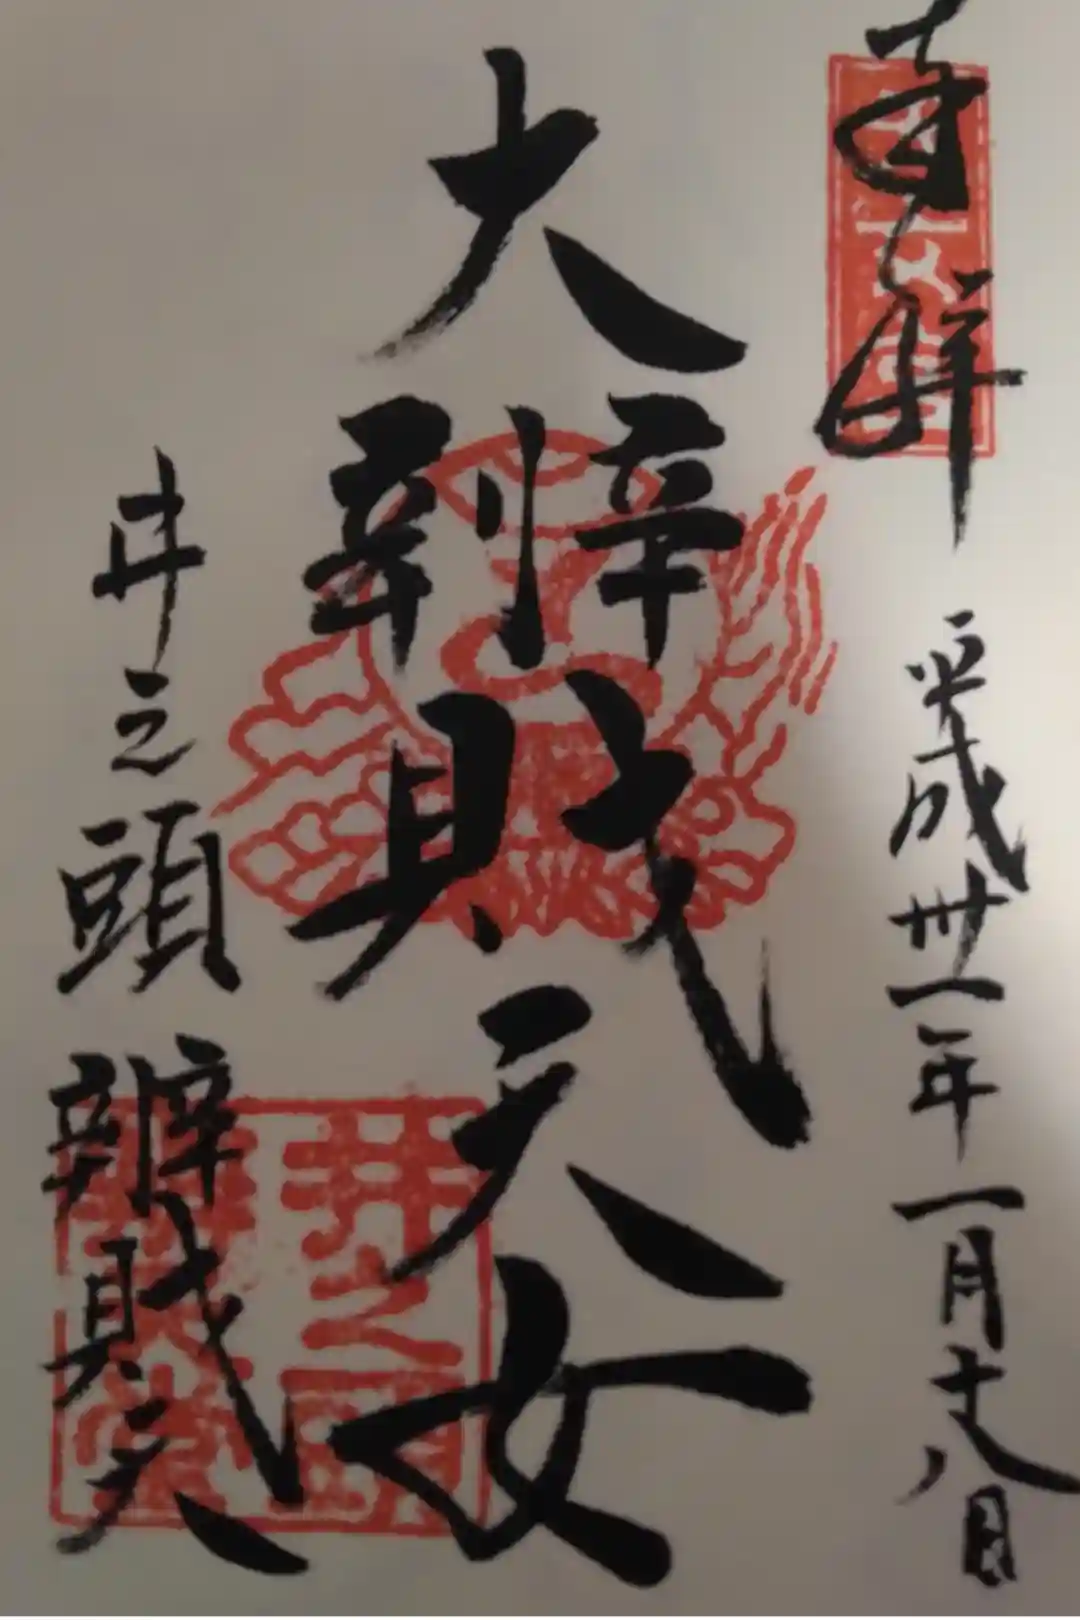 奉拝
平成丗一年一月十八日
大辨財天女
井之頭 辨財天
井之頭